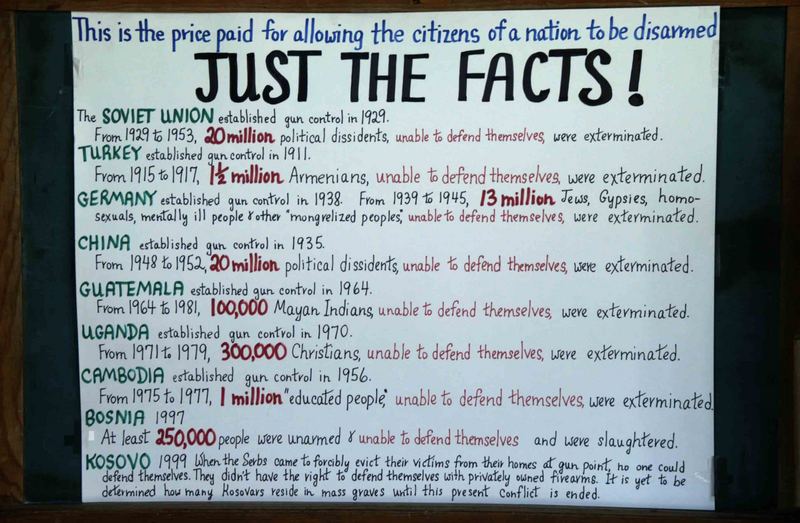 This is the price paid for allowing the citizens of a nation to be disarmed
JUST THE FACTS!
The SOVIET UNION established gun control in 1929.
From 1929 to 1953, 20 million political dissidents, unable to defend themselves, were exterminated.
TURKEY established gun control in 1911.
From 1915 to 1917, 1½ million Armenians, unable to defend themselves, were exterminated.
GERMANY established gun control in 1938. From 1939 to 1945, 13 million Jews, Gypsies, homo-
sexuals, mentally ill people & other "mongrelized peoples," unable to defend themselves, were exterminated.
CHINA established gun control in 1935.
From 1948 to 1952, 20 million political dissidents, unable to defend themselves, were exterminated.
GUATEMALA established gun control in 1964.
From 1964 to 1981, 100,000 Mayan Indians, unable to defend themselves, were exterminated.
UGANDA established gun control in 1970.
From 1971 to 1979, 300,000 Christians, unable to defend themselves, were exterminated.
CAMBODIA established gun control in 1956.
From 1975 to 1977, 1 million "educated people," unable to defend themselves, were exterminated.
BOSNIA 1997
At least 250,000 people were unarmed & unable to defend themselves and were slaughtered.
KOSOVO 1999 When the Serbs came to forcibly evict their victims from their homes at gun point, no one could
defend themselves. They didn't have the right to defend themselves with privately owned firearms. It is yet to be
determined how many Kosovars reside in mass graves until this present conflict is ended.